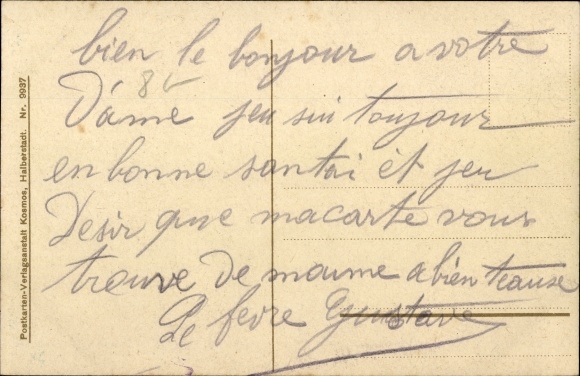 bien le bonjour a votre
Dáme jeu sui toujour
en bonne santai ét jeu
Desir que macarte vous
trouve De maume abien teause
Le fevre Gustave
Postkarten-Verlagsanstalt Kosmos, Halberstadt. Nr. 9937